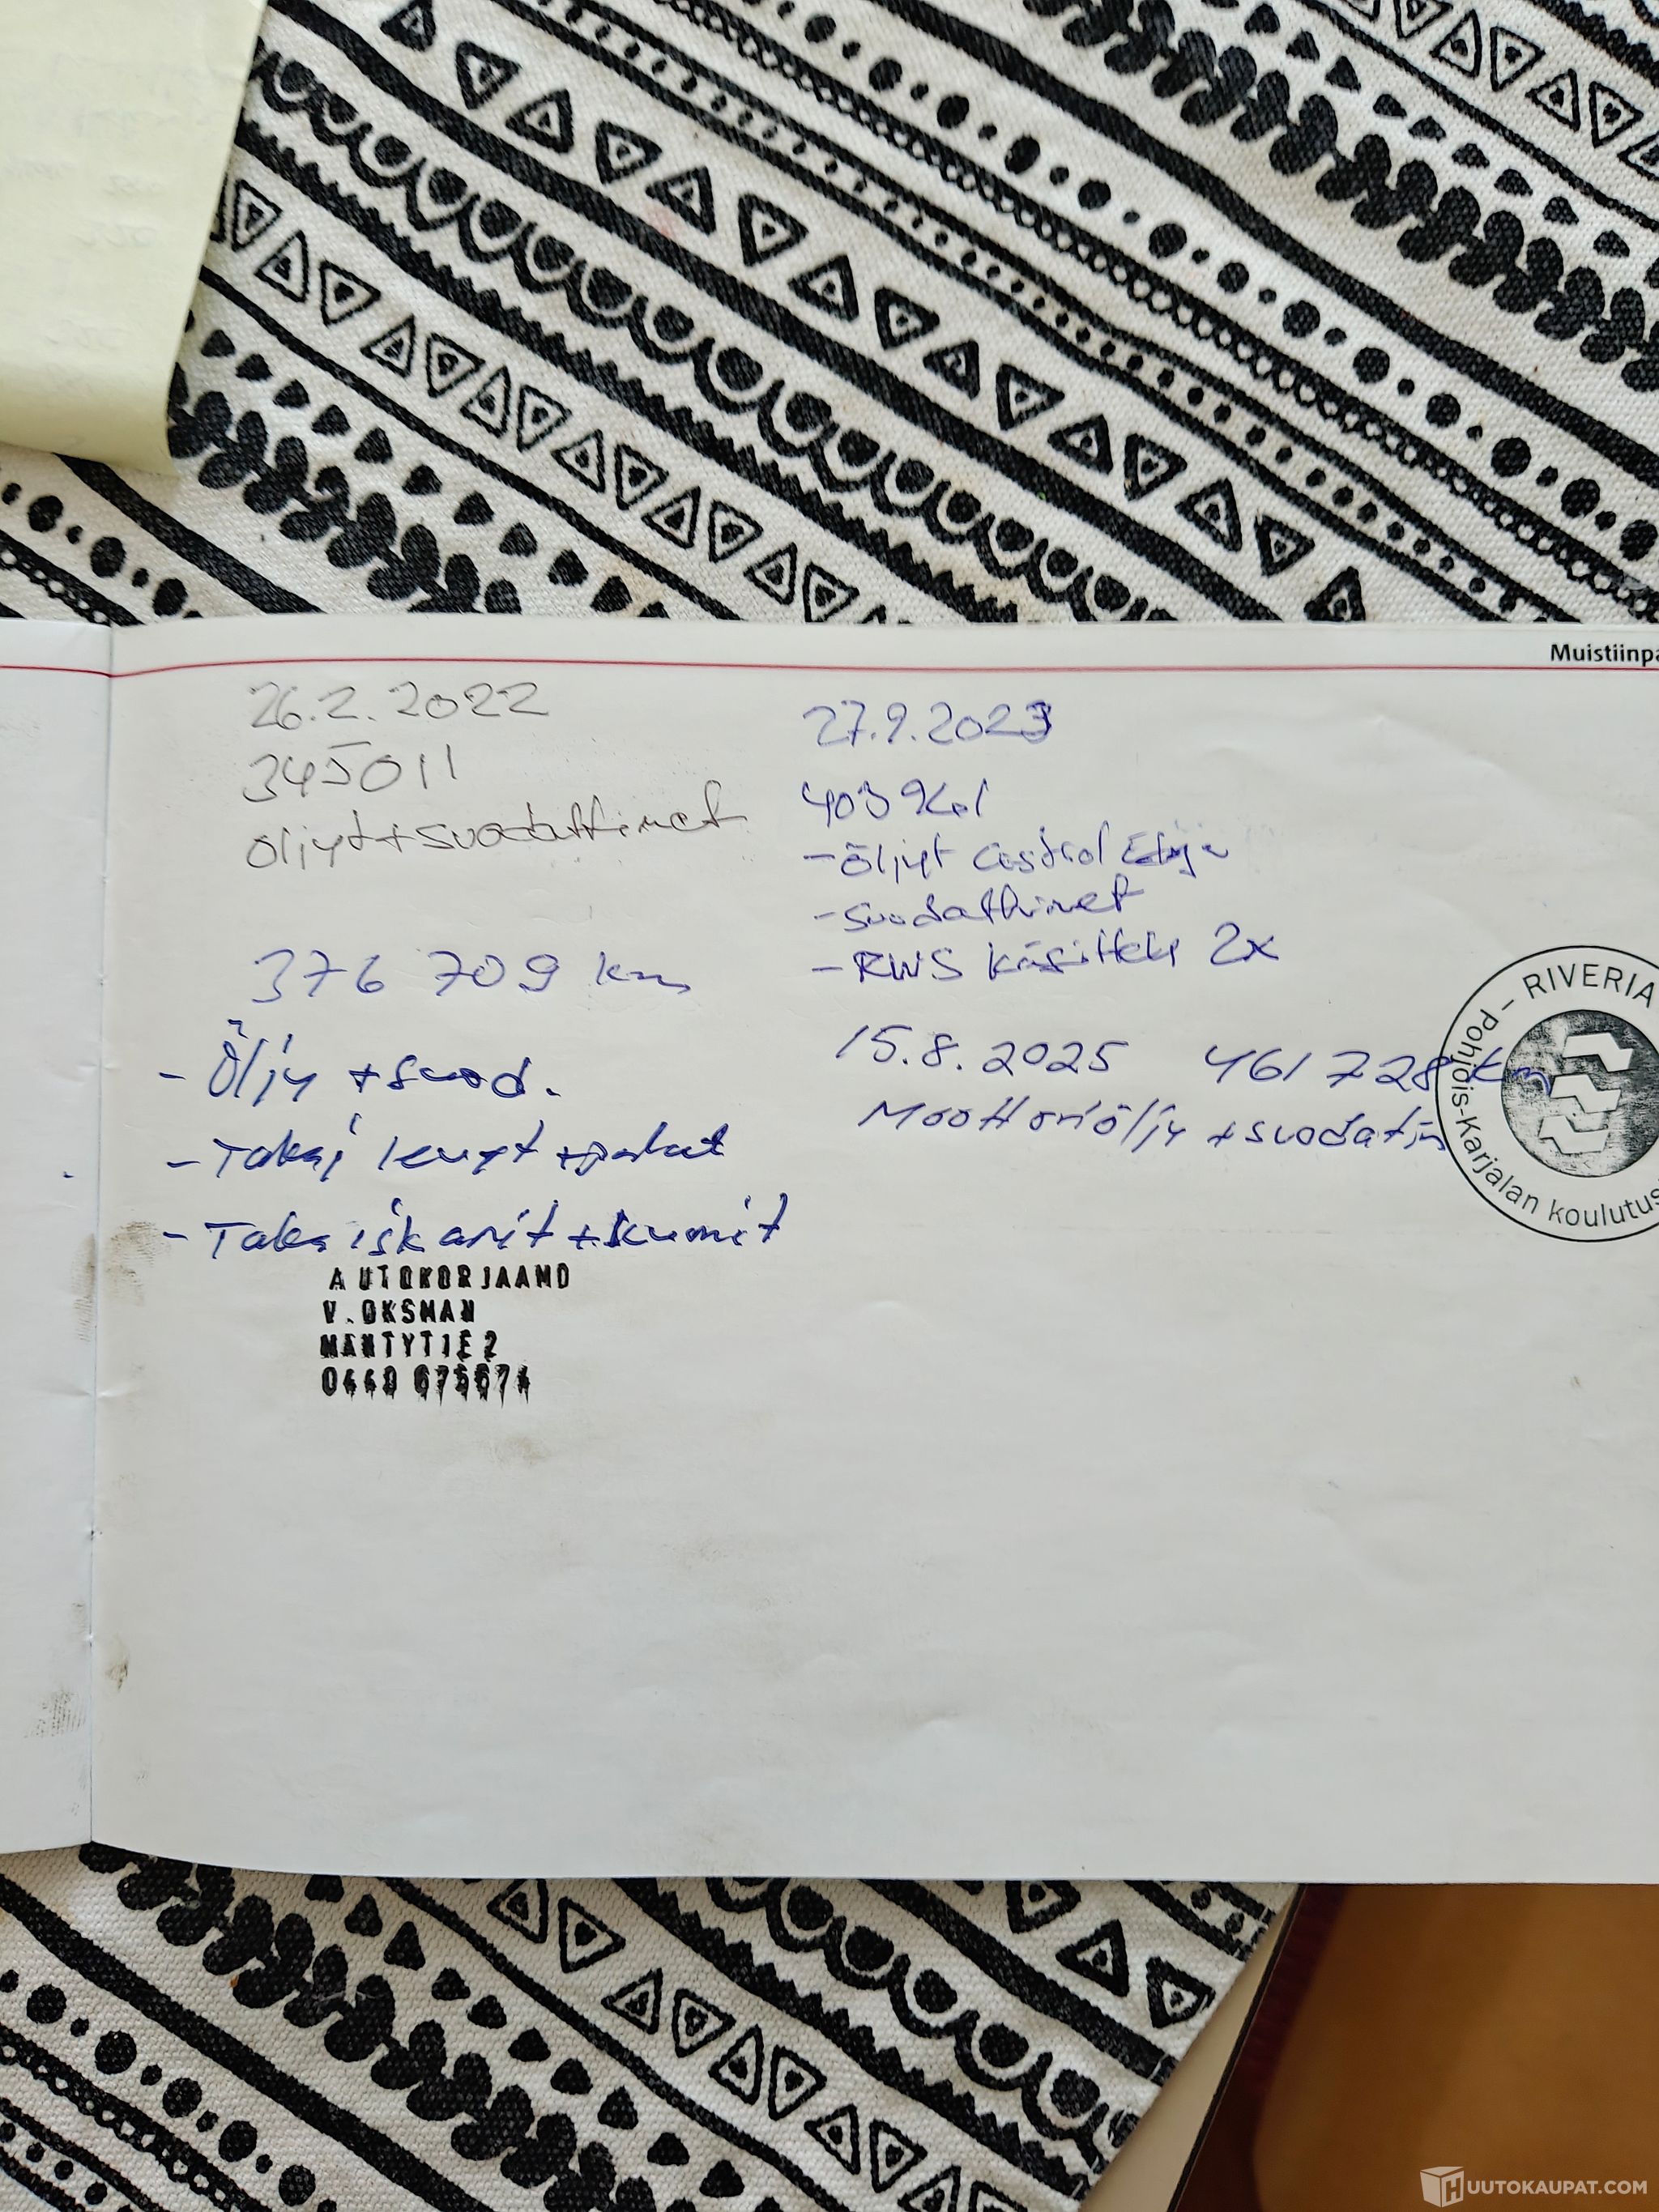 Muistiinpa
26.2.2022
345011
öljyt+suodattimet
376 709 km
- Öljy +suod.
- Taka levyt +palat
- Taka iskarit +kumit
AUTOKORJAAMO
V.OKSMAN
MANTYTIE 2
0440 675674
27.9.2023
403
- öljyt Castrol Edge
- suodattimet
- RWS käsittely 2x
15.8.2025 461 728 km
Moottoriöljy +suodatin
RIVERIA
Pohjois-Karjalan koulutus
HUUTOKAUPAT.COM